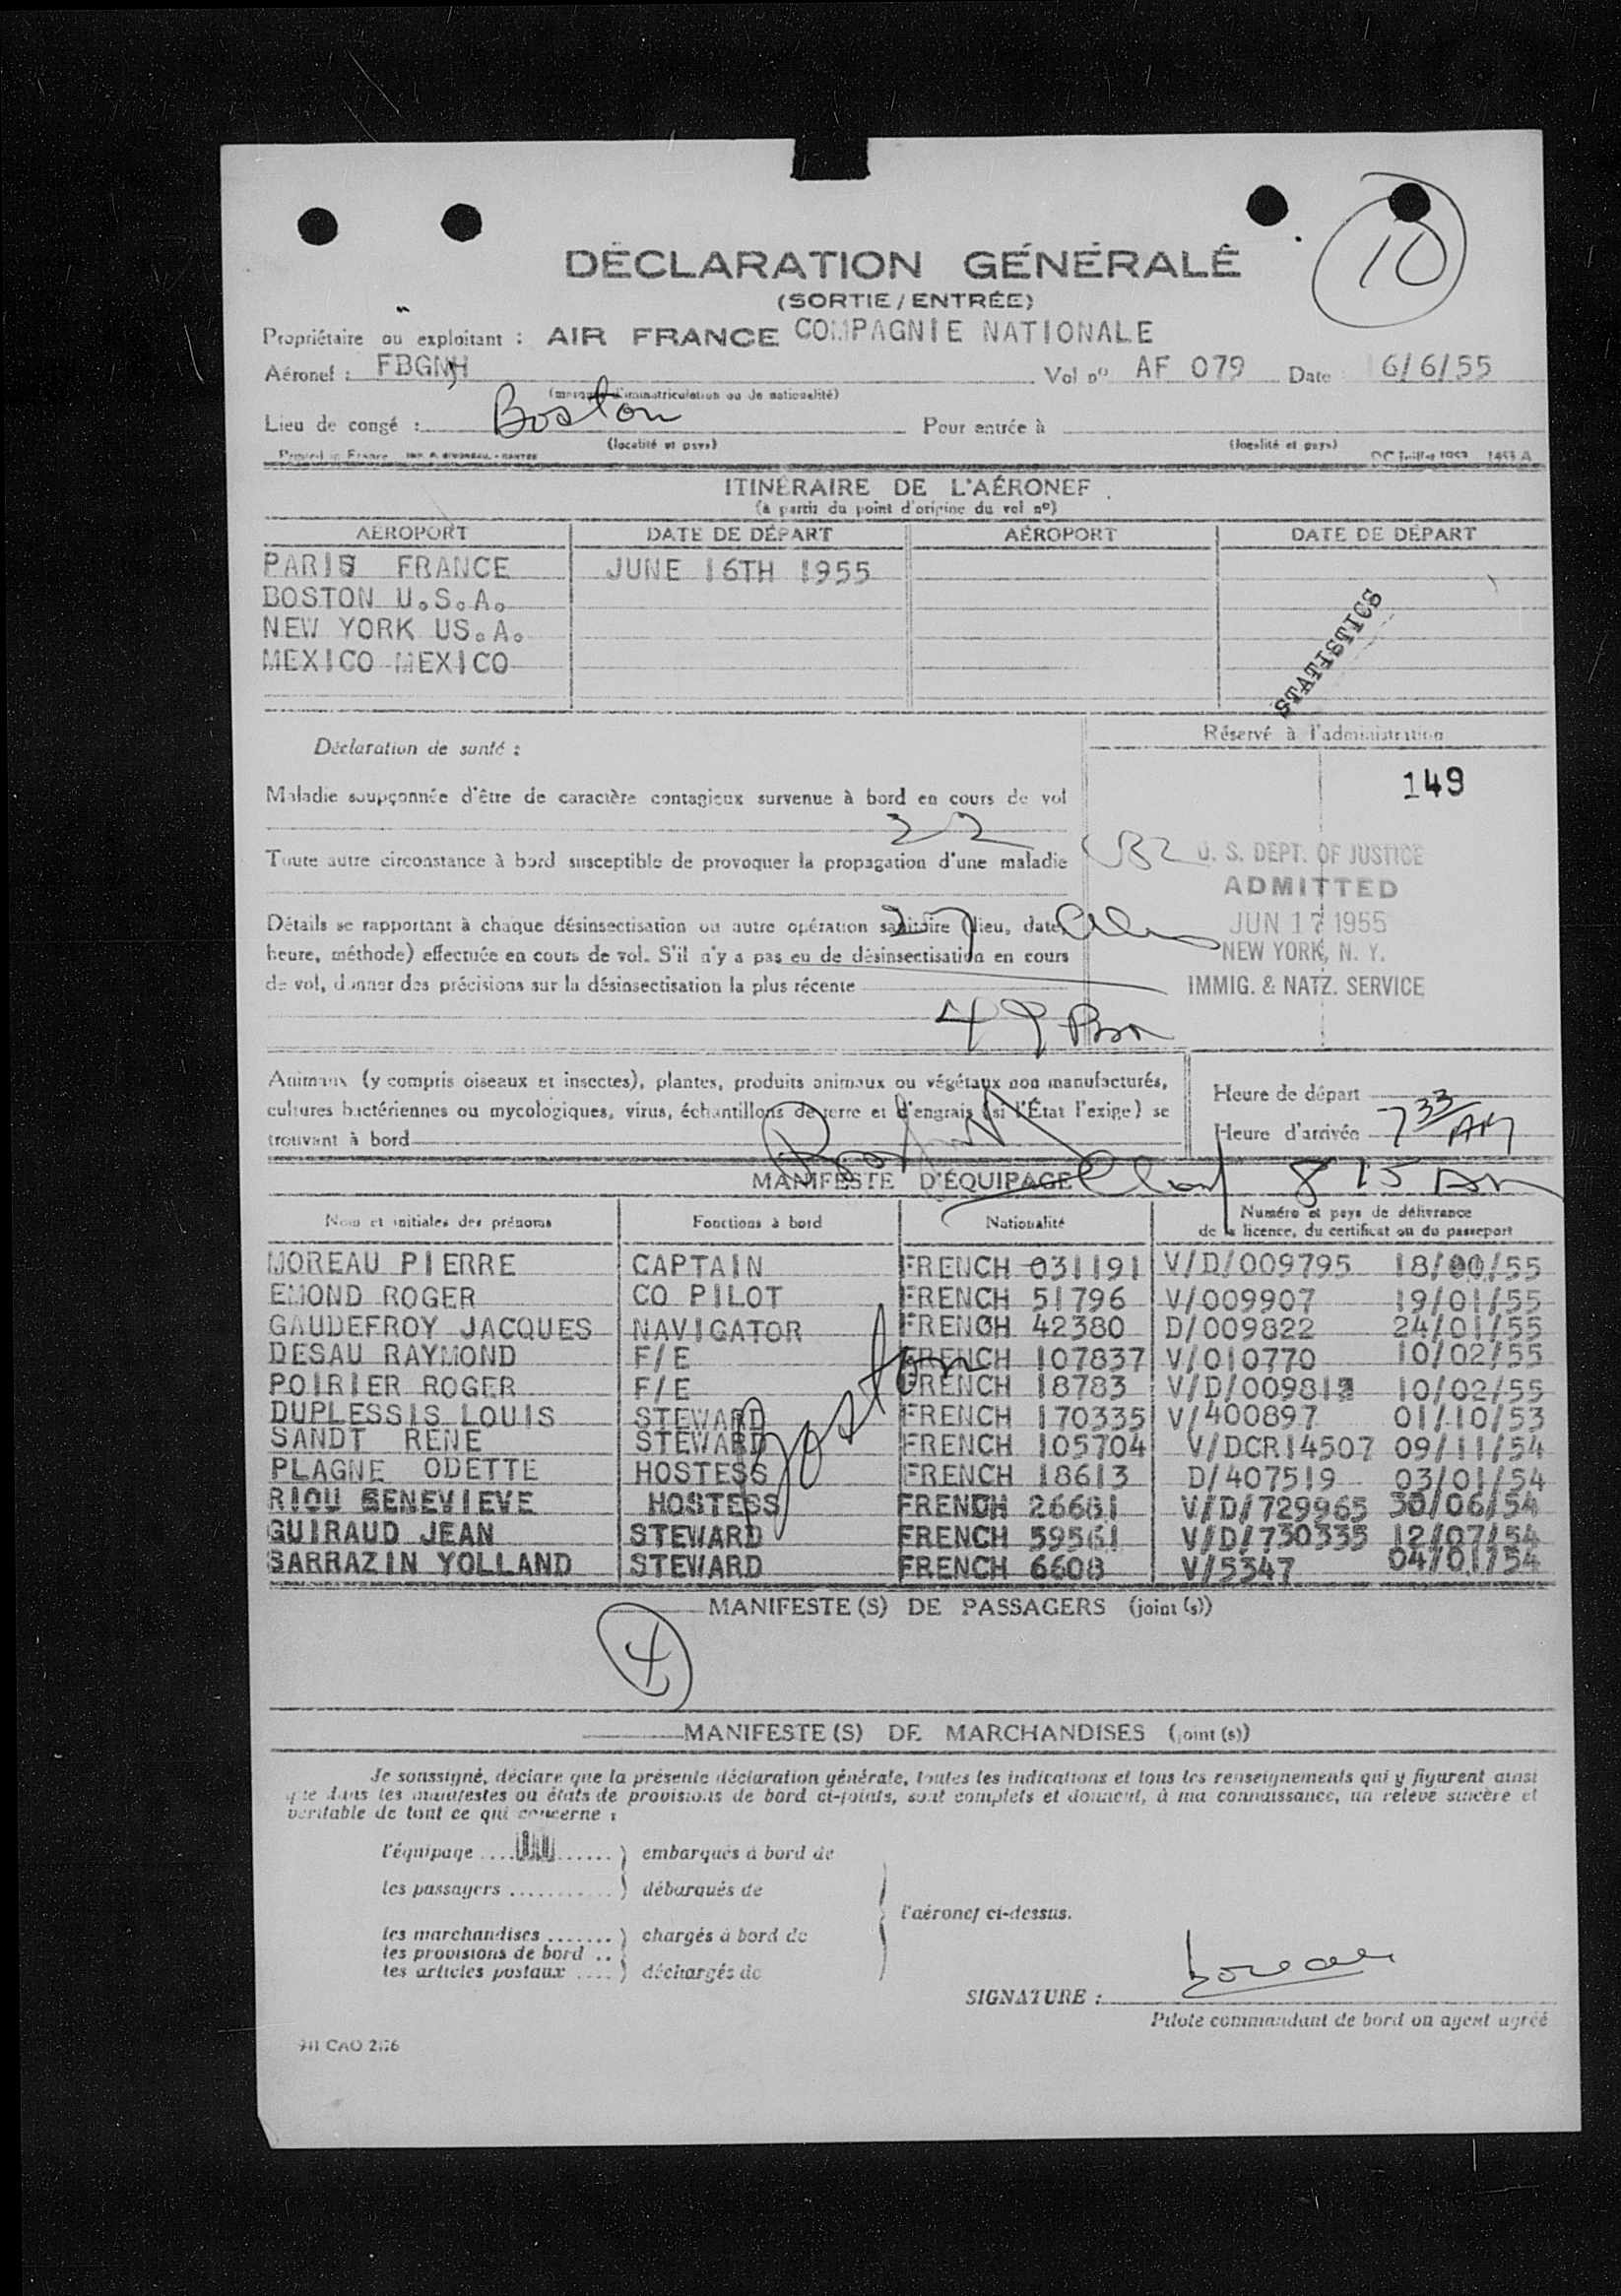 10
DÉCLARATION GÉNÉRALE
(SORTIE/ENTRÉE)
Propriétaire ou exploitant : AIR FRANCE COMPAGNIE NATIONALE
Aéronef : FBGNH Vol nº AF 079 Date 6/6/55
(marques d'immatriculation ou de nationalité)
Lieu de congé : Boston Pour entrée à
(localité et pays) (localité et pays)
Printed in France
ITINÉRAIRE DE L'AÉRONEF
(à partir du point d'origine du vol nº)
AÉROPORT DATE DE DÉPART AÉROPORT DATE DE DÉPART
PARIS FRANCE JUNE 16TH 1955
BOSTON U.S.A.
NEW YORK US.A.
MEXICO MEXICO
STATISTICS
Déclaration de santé : Réservé à l'administration
149
Maladie soupçonnée d'être de caractère contagieux survenue à bord en cours de vol
22
Toute autre circonstance à bord susceptible de provoquer la propagation d'une maladie
U. S. DEPT. OF JUSTICE
ADMITTED
Détails se rapportant à chaque désinsectisation ou autre opération sanitaire (lieu, date,
heure, méthode) effectuée en cours de vol. S'il n'y a pas eu de désinsectisation en cours
de vol, donner des précisions sur la désinsectisation la plus récente
27
JUN 17 1955
NEW YORK, N. Y.
IMMIG. & NATZ. SERVICE
49
Animaux (y compris oiseaux et insectes), plantes, produits animaux ou végétaux non manufacturés,
cultures bactériennes ou mycologiques, virus, échantillons de terre et d'engrais (si l'État l'exige) se
trouvant à bord
Heure de départ
Heure d'arrivée 7 33 AM
8 15 AM
MANIFESTE D'ÉQUIPAGE
Nom et initiales des prénoms Fonctions à bord Nationalité Numéro et pays de délivrance
de la licence, du certificat ou du passeport
MOREAU PIERRE CAPTAIN FRENCH 031191 V/D/009795 18/00/55
EMOND ROGER CO PILOT FRENCH 51796 V/009907 19/01/55
GAUDEFROY JACQUES NAVIGATOR FRENCH 42380 D/009822 24/01/55
DESAU RAYMOND F/E FRENCH 107837 V/010770 10/02/55
POIRIER ROGER F/E FRENCH 18783 V/D/009812 10/02/55
DUPLESSIS LOUIS STEWARD FRENCH 170335 V/400897 01/10/53
SANDT RENE STEWARD FRENCH 105704 V/DCR14507 09/11/54
PLAGNE ODETTE HOSTESS FRENCH 18613 D/407519 03/01/54
RIOU GENEVIEVE HOSTESS FRENCH 26681 V/D/729965 30/06/54
GUIRAUD JEAN STEWARD FRENCH 59561 V/D/730335 12/07/54
SARRAZIN YOLLAND STEWARD FRENCH 6608 V/5347 04/01/54
Boston
MANIFESTE(S) DE PASSAGERS (joint(s))
4
MANIFESTE(S) DE MARCHANDISES (joint(s))
Je soussigné, déclare que la présente déclaration générale, toutes les indications et tous les renseignements qui y figurent ainsi
que dans les manifestes ou états de provisions de bord ci-joints, sont complets et donnent, à ma connaissance, un relevé sincère et
véritable de tout ce qui concerne :
l'équipage ............ ) embarqués à bord de
les passagers ........... ) débarqués de
l'aéronef ci-dessus.
les marchandises ....... ) chargés à bord de
les provisions de bord ..
les articles postaux .... ) déchargés de
SIGNATURE :
Pilote commandant de bord ou agent agréé